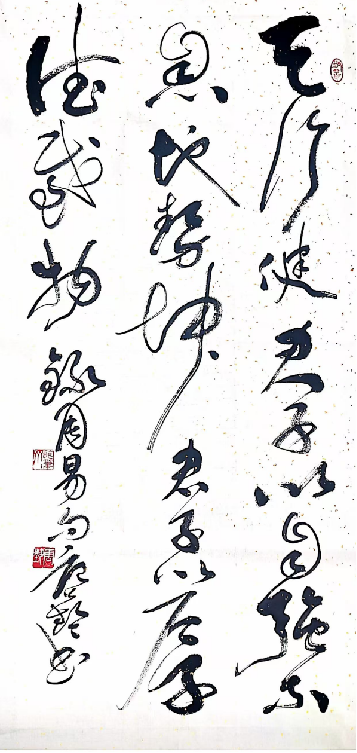 天行健君子以自强不
息地势坤君子以厚
德载物
录周易句